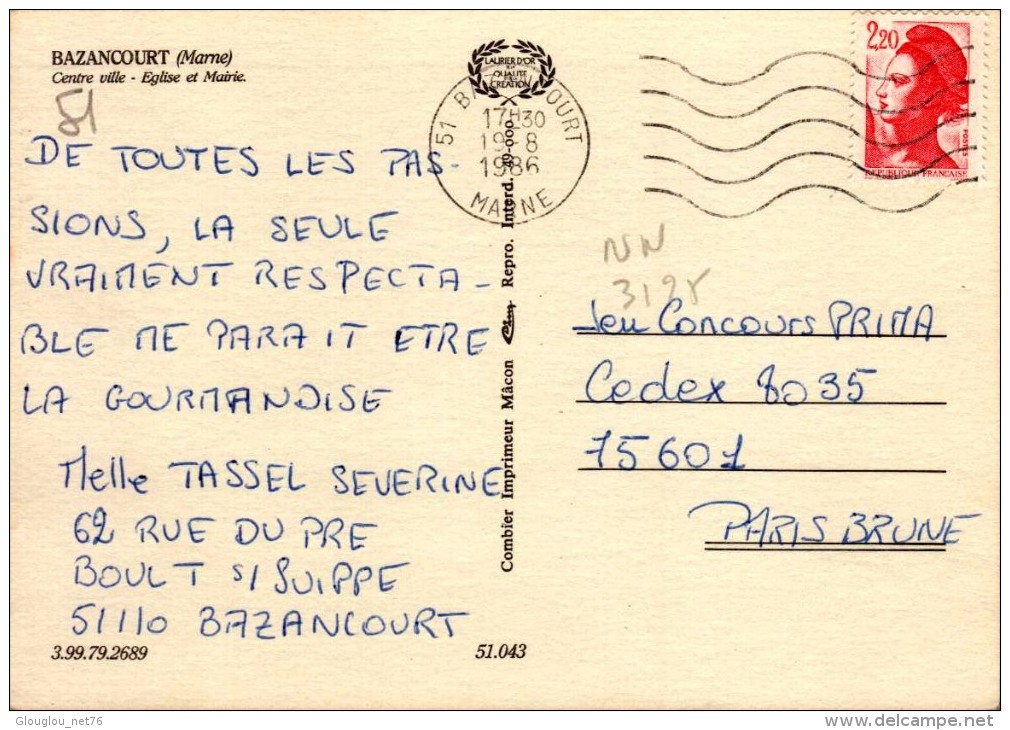 BAZANCOURT (Marne)
Centre ville - Eglise et Mairie.
51
DE TOUTES LES PAS-
SIONS, LA SEULE
VRAIMENT RESPECTA-
BLE ME PARAIT ETRE
LA GOURMANDISE
Melle TASSEL SEVERINE
62 RUE DU PRE
BOULT s/ SUIPPE
51110 BAZANCOURT
3.99.79.2689
51.043
Combier Imprimeur Mâcon
Repro. Interd.
LAURIER D'OR
QUALITÉ
CRÉATION
51 BAZANCOURT
17H30
19-8
1986
MARNE
2,20
POSTES
REPUBLIQUE FRANÇAISE
NN
3195
Jeu Concours PRIMA
Cedex 8035
75601
PARIS BRUNE
Glouglou_net76
delcampe.net